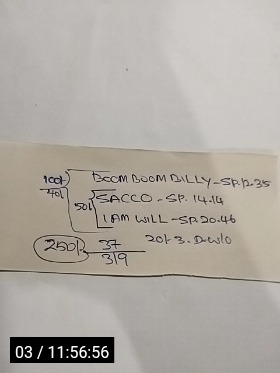 100/- BOOM BOOM BILLY - SP. 12.35
40/
50/- SACCO - SP. 14.14
I AM WILL - SP. 20.46
250/- 37 20/- 3. D-W/O
319
03 / 11:56:56